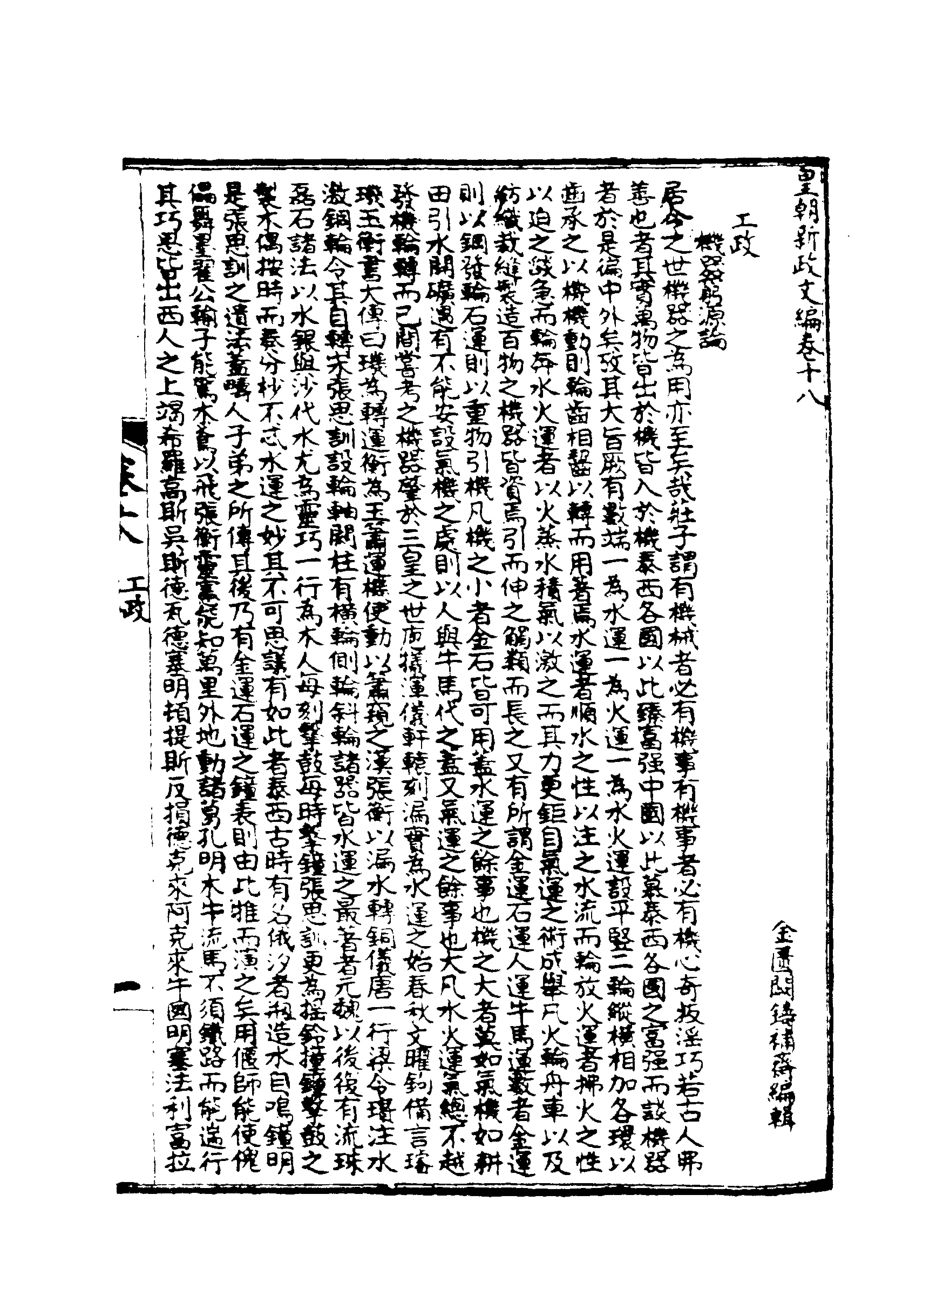 皇朝新政文編卷十八
金匱閔鑄補齋編輯
工政
機器躬源論
居今之世機器之為用亦至矣哉莊子謂有機械者必有機事有機事者必有機心奇技淫巧若古人弗
善也者其實萬物皆出於機皆入於機泰西各國以此臻富强中國以此慕泰西各國之富强而談機器
者於是徧中外矣攷其大旨厥有數端一為水運一為火運一為水火運設平竪二輪縱橫相加各環以
齒承之以機機動則輪齒相齧以轉而用著焉水運者順水之性以注之水流而輪放火運者拂火之性
以迫之燄急而輪奔水火運者以火蒸水積氣以激之而其力更鉅自氣運之術成舉凡火輪舟車以及
紡織裁縫製造百物之機器皆資焉引而伸之觸類而長之又有所謂金運石運人運牛馬運數者金運
則以鋼發輪石運則以重物引機凡機之小者金石皆可用蓋水運之餘事也機之大者莫如氣機如耕
田引水開礦遇有不能安設氣機之處則以人與牛馬代之蓋又氣運之餘事也大凡水火運氣總不越
發機輪轉而已閒嘗考之機器肇於三皇之世庖犧渾儀軒轅刻漏實為水運之始春秋文曜鉤備言璿
璣玉衡書大傳曰璣為轉運衡為玉蕭運機使動以蕭窺之漢張衡以漏水轉銅儀唐一行梁令瓚注水
激銅輪令其自轉宋張思訓設輪軸關柱有橫輪側輪斜輪諸器皆水運之最著者元魏以後復有流珠
磊石諸法以水銀與沙代水尤為靈巧一行為木人每刻擊鼓每時擊鐘張思訓更為搖鈴撞鐘擊鼓之
製木偶按時而奏分杪不忒水運之妙其不可思議有如此者泰西古時有名俄汐者刱造水自鳴鐘明
是張思訓之遺法蓋疇人子弟之所傳其後乃有金運石運之鐘表則由此推而演之矣用偃師能使傀
儡舞墨翟公輸子能駕木鳶以飛張衡靈臺能知萬里外地動諸葛孔明木牛流馬不須鐵路而能遄行
其巧思皆出西人之上竭希羅高斯吳斯德瓦德塞明頓提斯反損德克來阿克來牛國明塞法利富拉
卷十八
工政
一